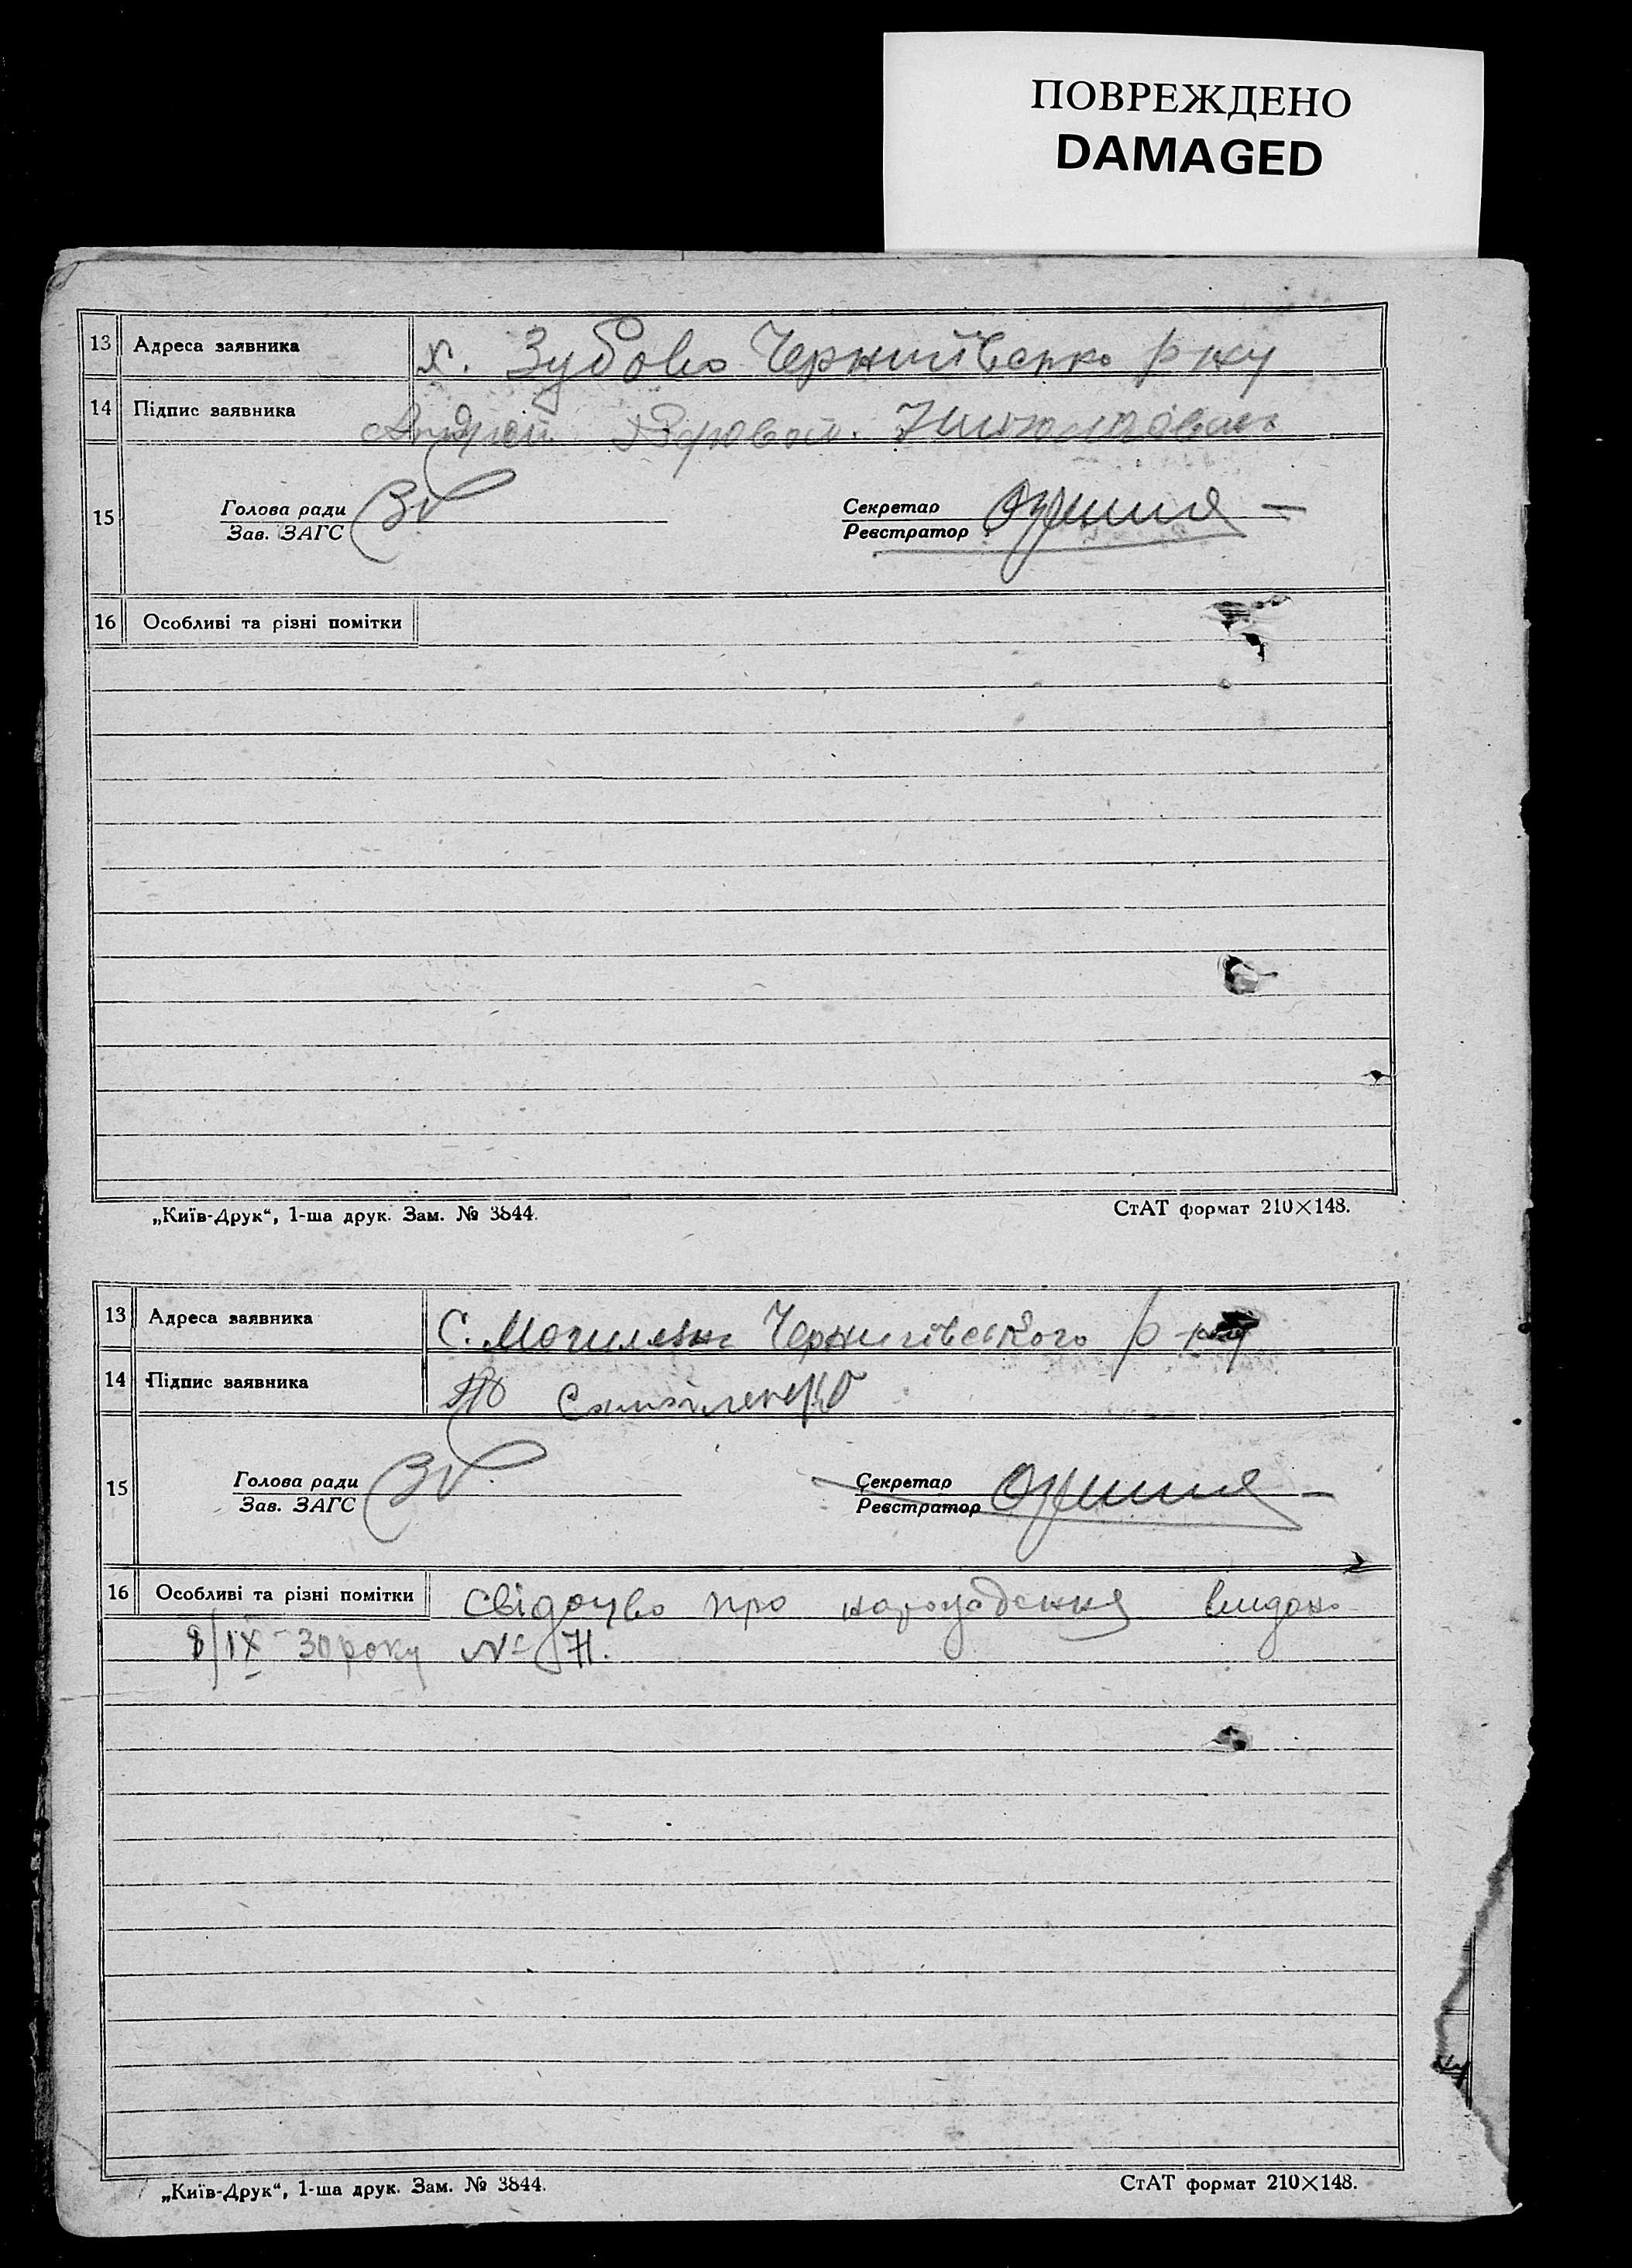 ПОВРЕЖДЕНО
DAMAGED
13 Адреса заявника х. Зубово
14 Підпис заявника Андрей
Голова ради Секретар
15
Зав. ЗАГС Реєстратор
16 Особливі та різні помітки
„Київ-Друк“, 1-ша друк. Зам. № 3844. СтАТ формат 210×148.
13 Адреса заявника С. Чернигівського р
14 Підпис заявника
Голова ради Секретар
15
Зав. ЗАГС Реєстратор
16 Особливі та різні помітки свідоцво про видано
/IX – 30 року № 71.
„Київ-Друк“, 1-ша друк. Зам. № 3844. СтАТ формат 210×148.